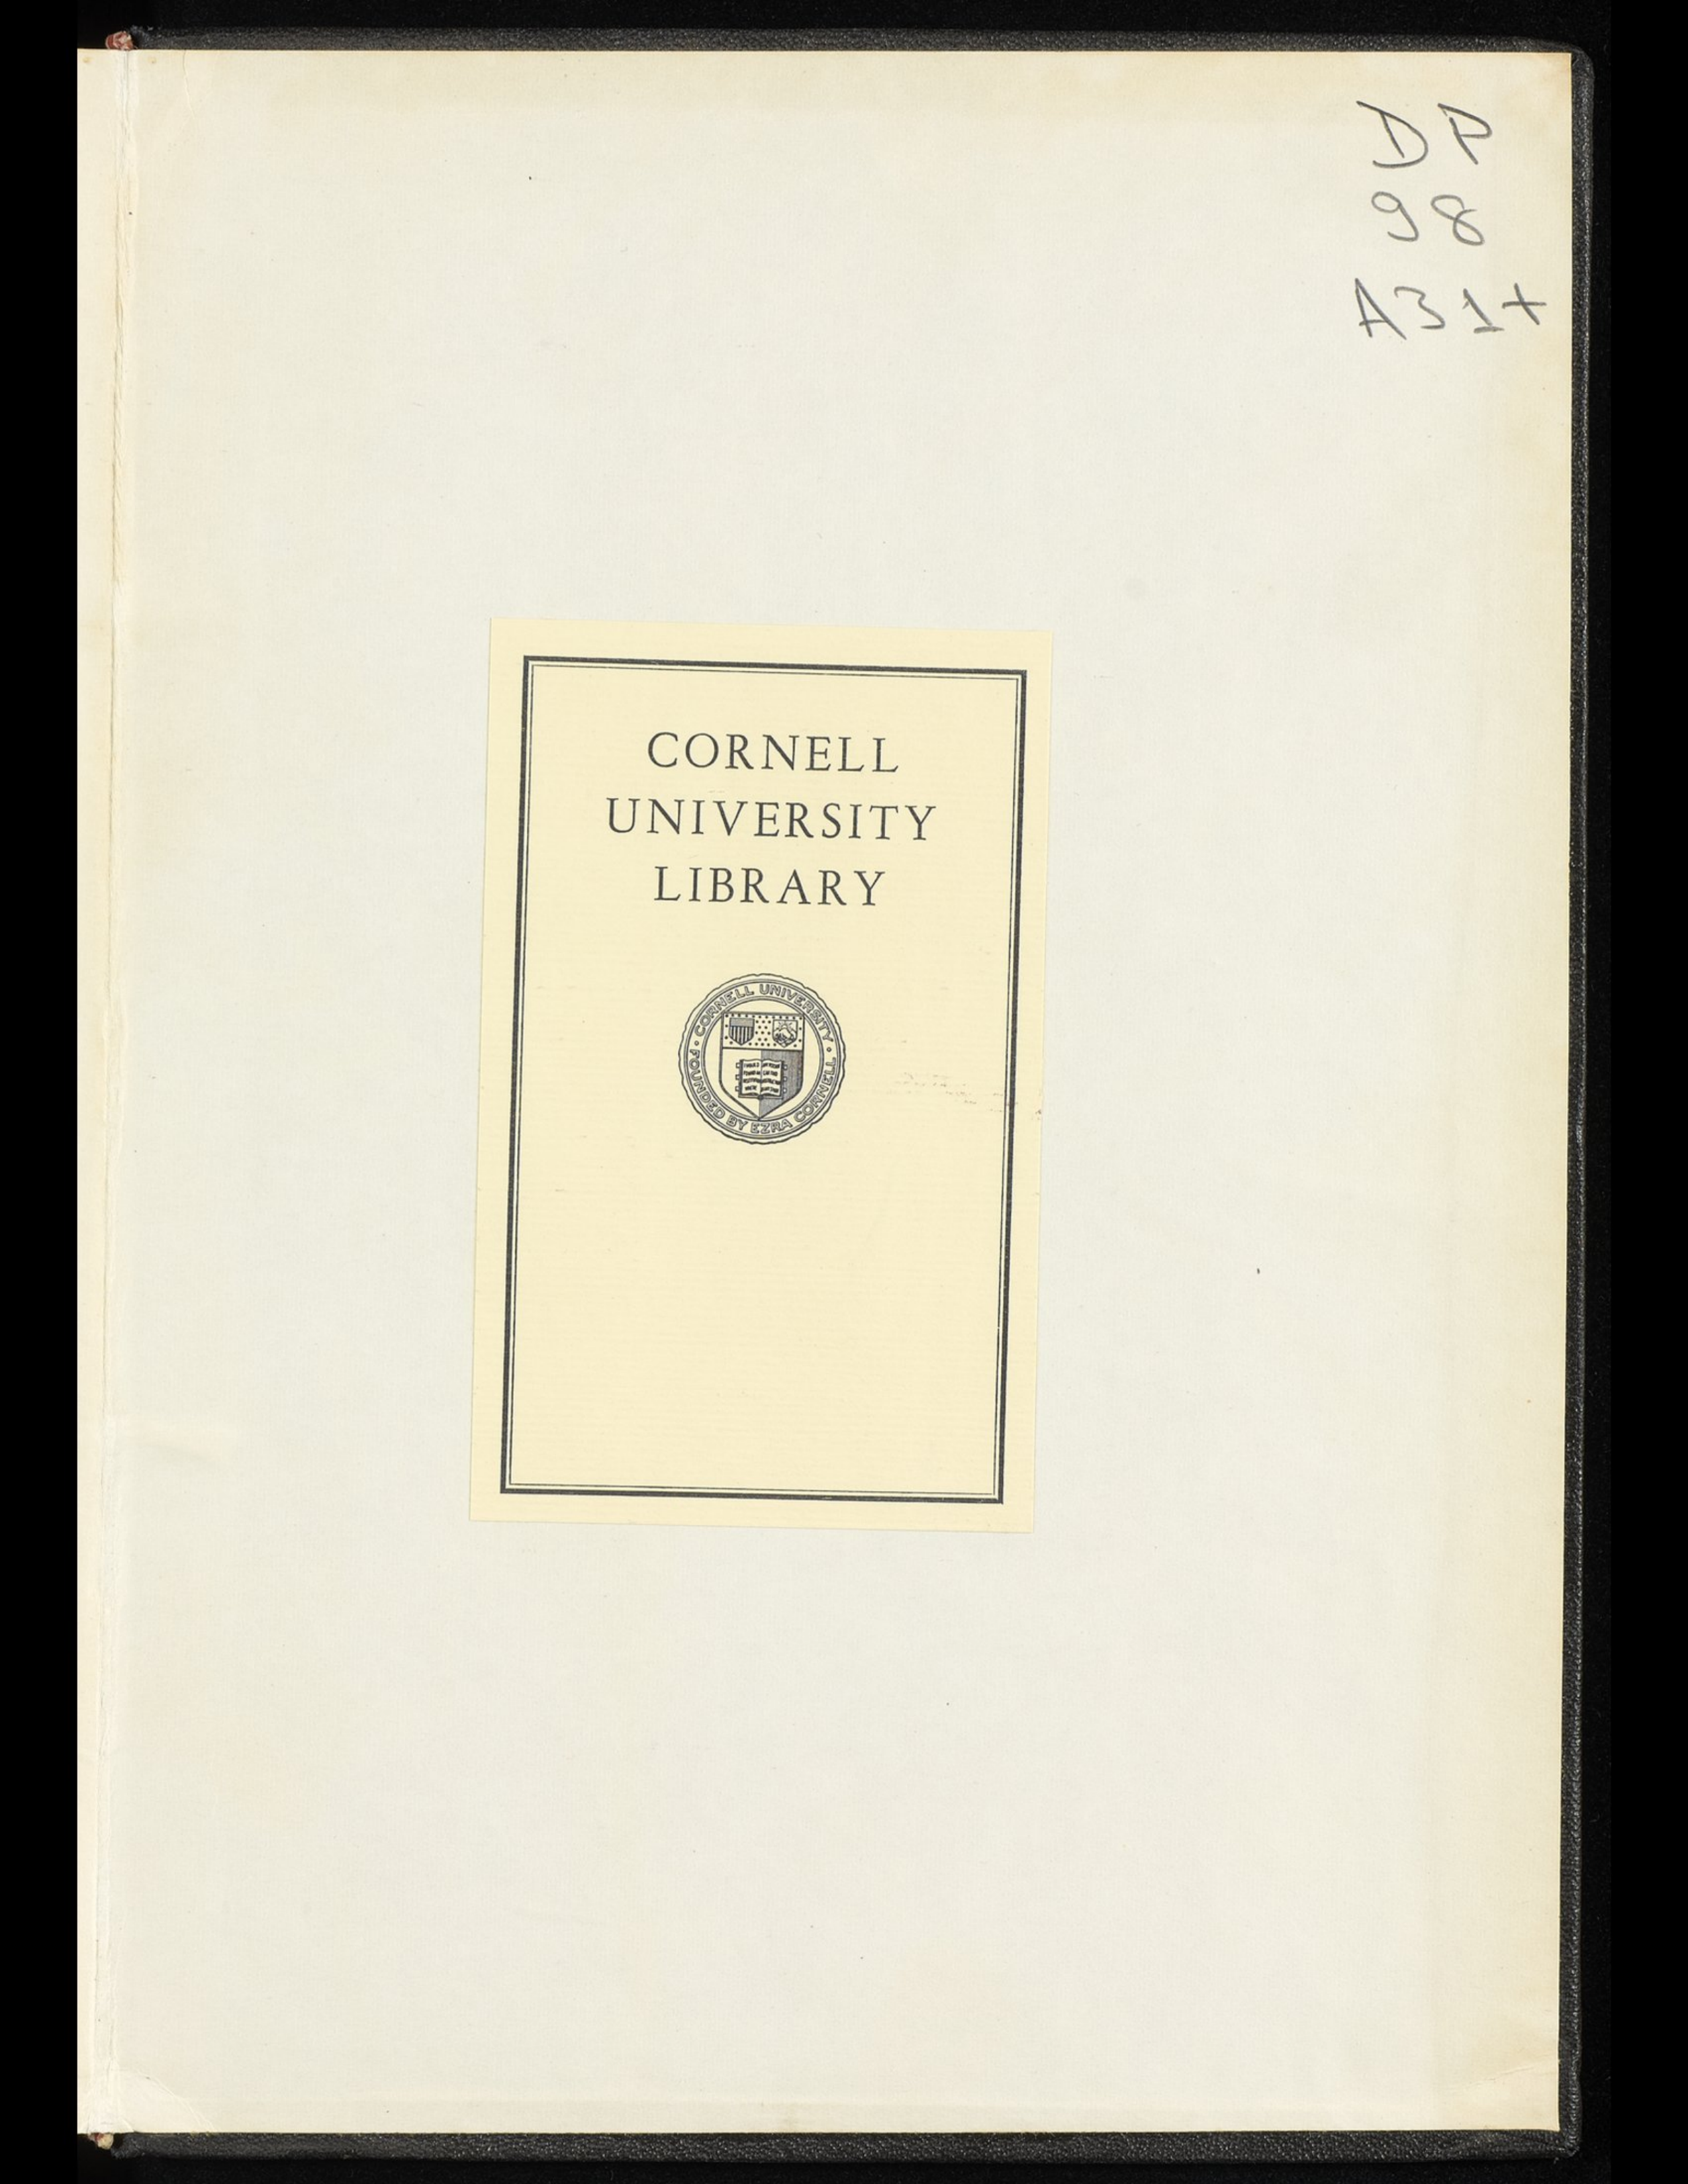 DP
98
A31+
CORNELL
UNIVERSITY
LIBRARY
CORNELL UNIVERSITY
FOUNDED BY EZRA CORNELL